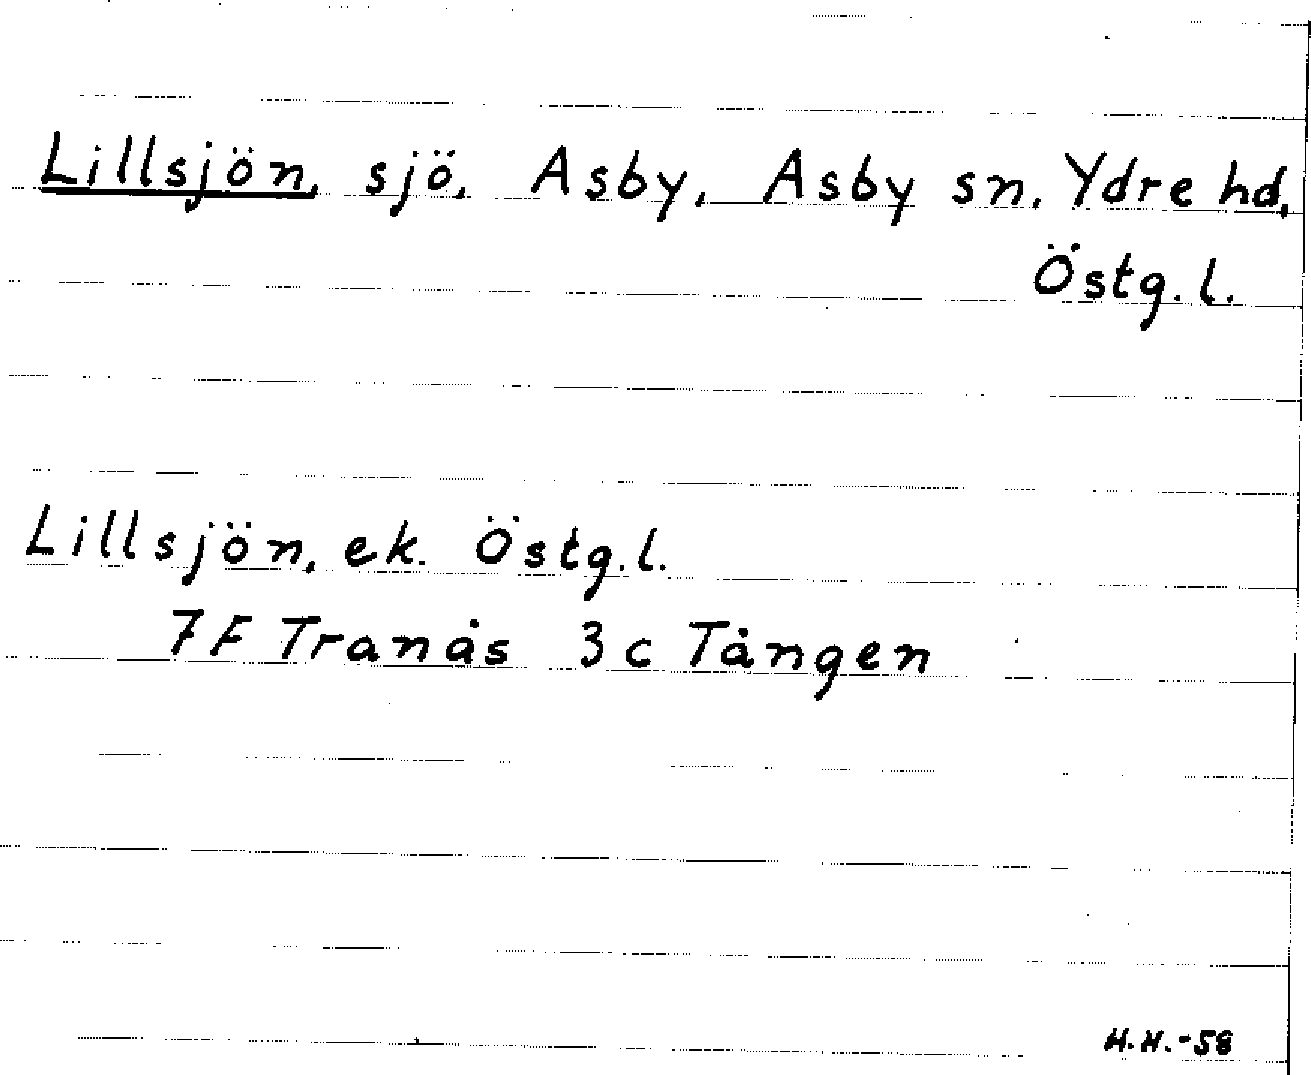 Lillsjön, sjö, Asby, Asby sn. Ydre hd,
Östg. l.
Lillsjön, ek. Östg. l.
7F Tranås 3c Tången
H.H.-58